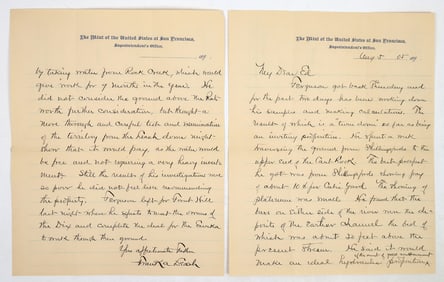 The Mint of the United States at San Francisco,
Superintendent's Office.
Aug 5 05
My Dear Ed
Ferguson got back Thursday and
for the past two days has been working down
his samples and making calculations. The
result of which is a "turn down" so far as being
an inviting proposition. He spent a week
traversing the ground from Phillipsgrade to the
upper end of the Carl Rock. The best prospect
he got was from Phillipsgrade showing pay
of about 10 ¢ per Cubic Yard. The showing of
platinum was small. He found that the
bars on either side of the river were the de-
posits of the earlier channel the bed of
which was about 30 feet above the
present stream. He said it would
make an ideal hydraulic proposition
The Mint of the United States at San Francisco,
Superintendent's Office.
by taking water from Rock Creek, which would
give work for 7 months in the year. He
did not consider the ground above the
worth further consideration, but thought a
more thorough and careful test and examination
of the territory from the down might
show that it would pay, as the water would
be free and not requiring a very heavy invest-
ment. Still the results of his investigations were
so poor he did not feel like recommending
the property. Ferguson left for
last night where he expects to meet the owners of
the and complete the deal for the
through their ground.
Your affectionate Father
Frank A Leach